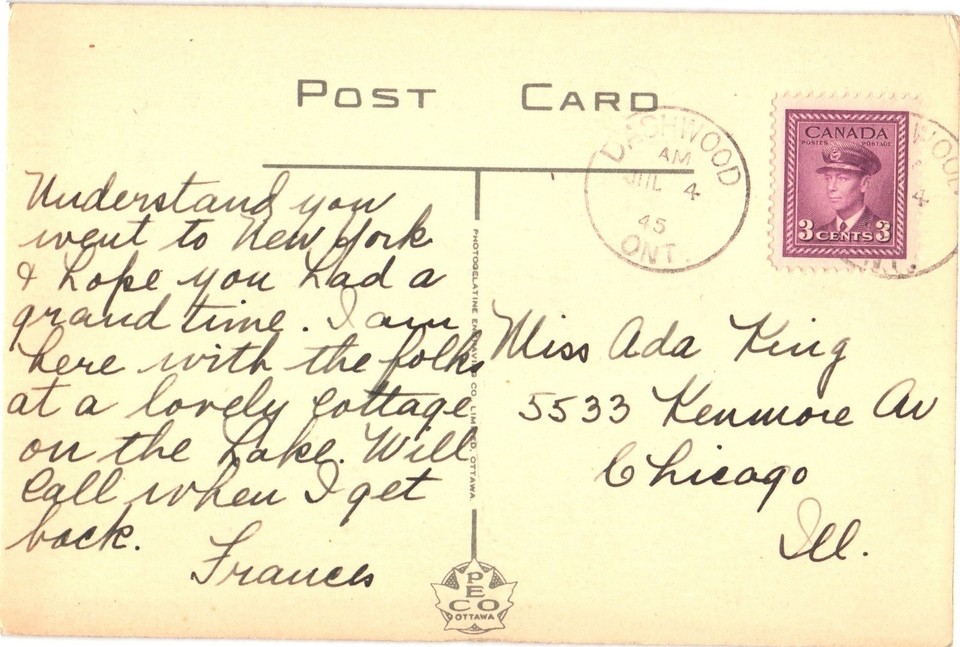 POST CARD
DASHWOOD
AM
JUL 4
45
ONT.
CANADA
POSTES POSTAGE
3 CENTS 3
WOOD
4
ONT.
Understand you
went to New York
& hope you had a
grand time. I am
here with the folks
at a lovely cottage
on the Lake. Will
Call when I get
back.
Frances
PHOTOGELATINE ENGRAVING CO. LIMITED, OTTAWA.
Miss Ada King
5533 Kenmore Av
Chicago
Ill.
PECO
OTTAWA